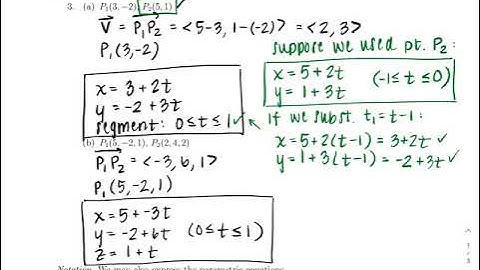 3. (a) P₁(3,−2), P₂(5,1)
V = P₁P₂ = <5−3, 1−(−2)> = <2,3>
P₁(3,−2)
x = 3+2t
y = −2+3t
segment: 0≤t≤1 ✓
suppose we used pt. P₂:
x = 5+2t
y = 1+3t
(−1≤t≤0)
If we subst. t₁=t−1:
x = 5+2(t−1) = 3+2t ✓
y = 1+3(t−1) = −2+3t ✓
(b) P₁(5,−2,1), P₂(2,4,2)
P₁P₂ = <−3, 6, 1>
P₁(5,−2,1)
x = 5+−3t
y = −2+6t (0≤t≤1)
z = 1+t
Notation. We may also express the parametric equations